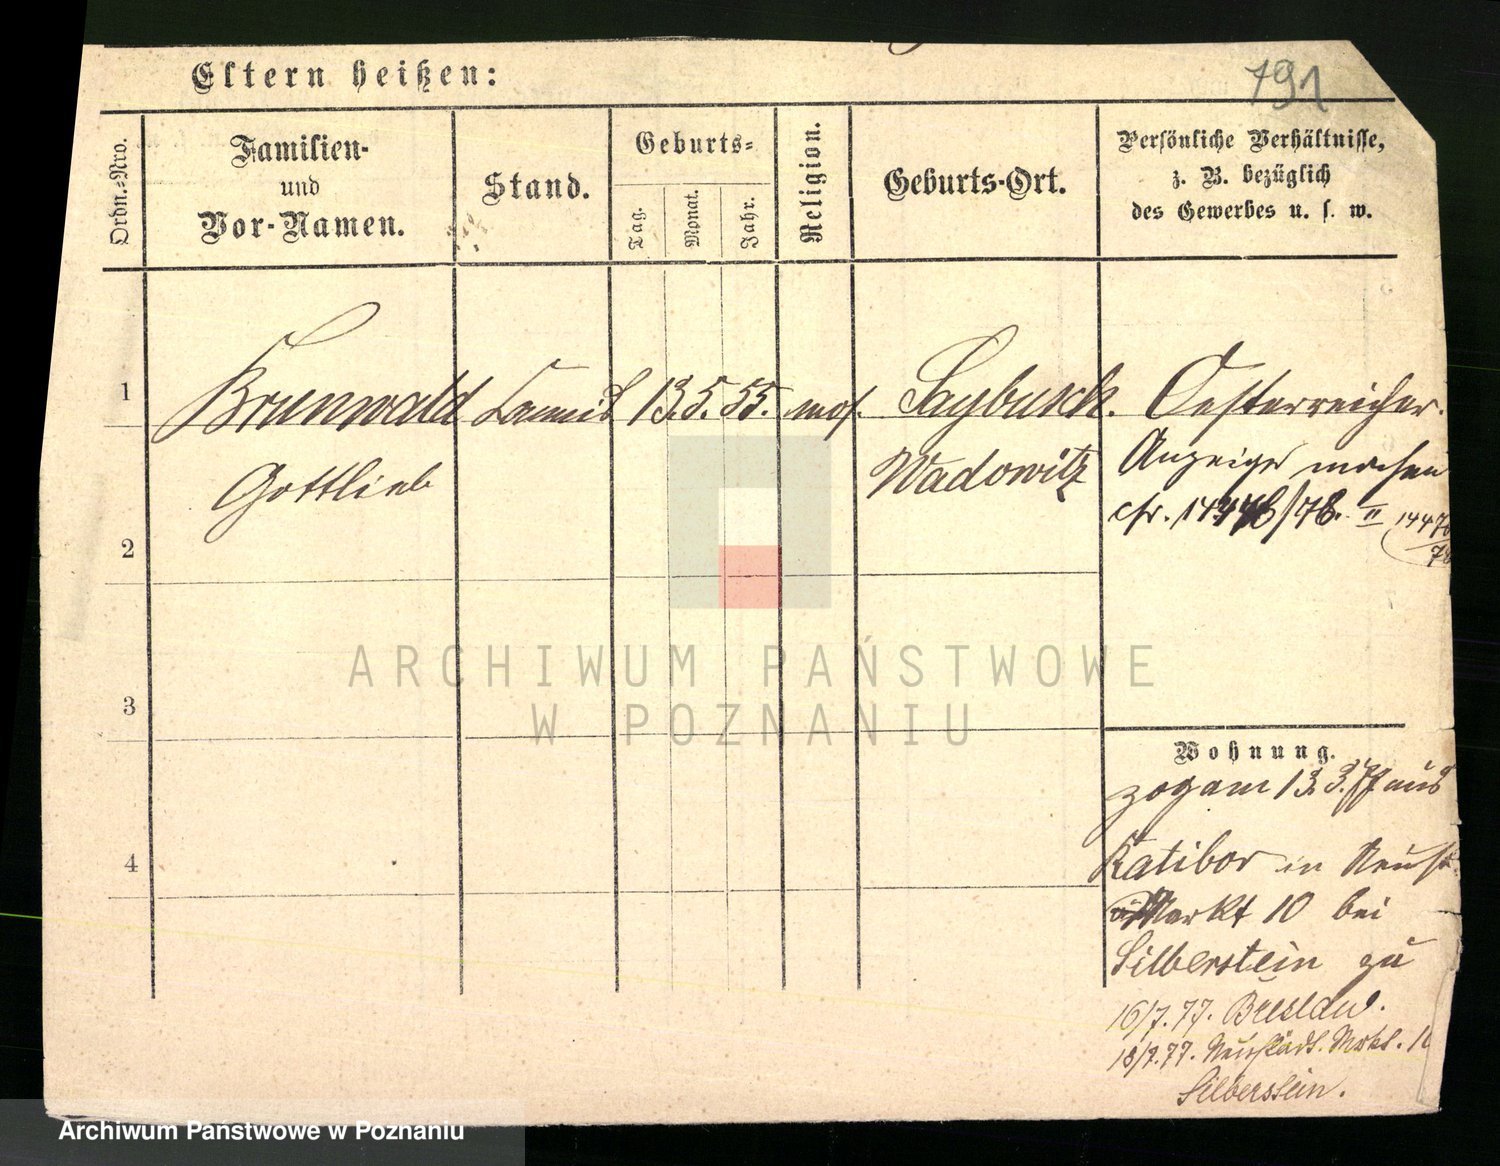 791
Eltern heißen:
Ordn.-Nro.
Familien-
und
Vor-Namen.
Stand.
Geburts-
Tag.
Monat.
Jahr.
Religion.
Geburts-Ort.
Persönliche Verhältnisse,
z. B. bezüglich
des Gewerbes u. s. w.
1
Brunwald
Gottlieb
Commis
13. 5. 55.
mos.
Saybusch.
Wadowitz
Oesterreicher.
Anzeige machen
cfr. 14476/78. II
14476
78
2
3
4
Wohnung.
zog am 13. 3. 77 aus
Ratibor in Neust.
Markt 10 bei
Silberstein zu
16/7. 77. Breslau.
18/7. 77. Neustädt. Mrkt. 10
Silberstein.
ARCHIWUM PAŃSTWOWE
W POZNANIU
Archiwum Państwowe w Poznaniu